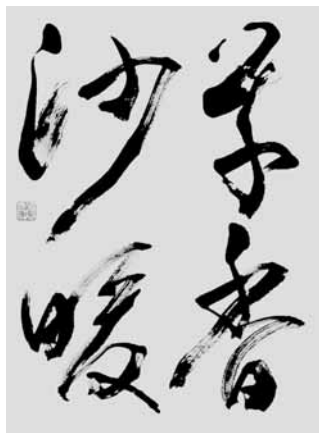 草香
沙暖